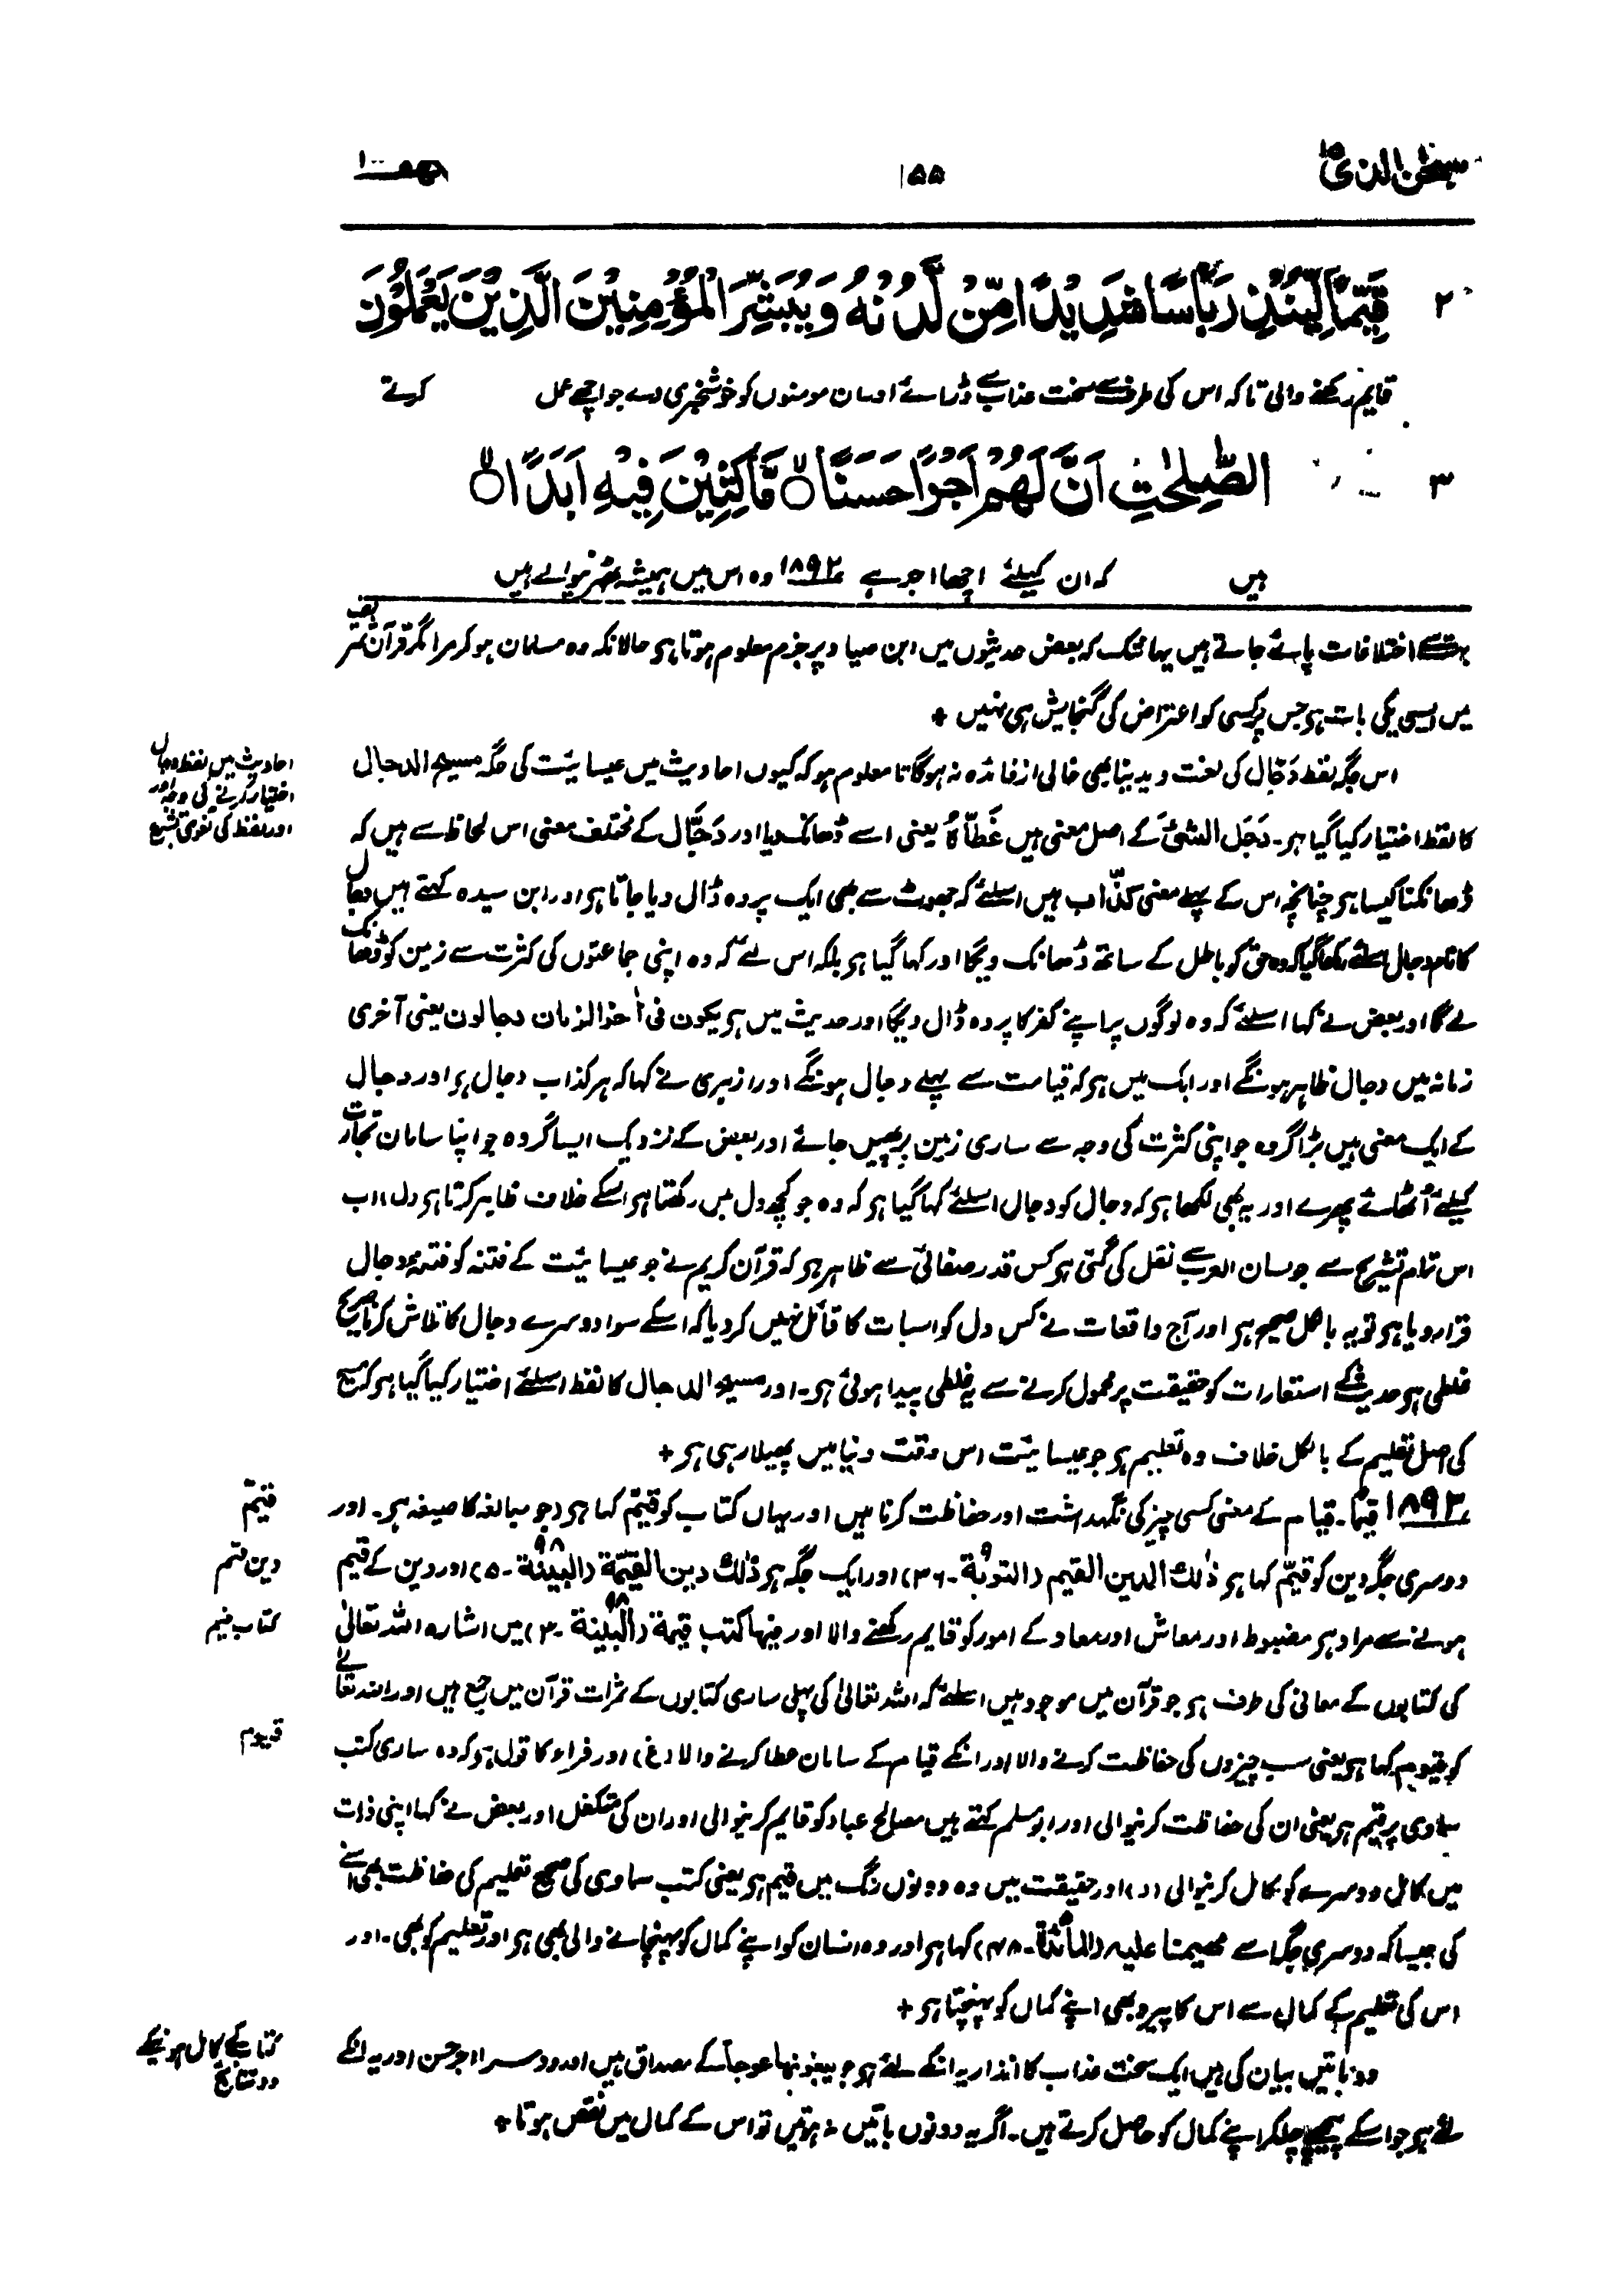 سبحٰن الذی ۱۵
۱۵۵
الکھف ۱۰۰
۲ قَیِّمًا لِّیُنْذِرَ بَاْسًا شَدِیْدًا مِّنْ لَّدُنْهُ وَیُبَشِّرَ الْمُؤْمِنِیْنَ الَّذِیْنَ یَعْمَلُوْنَ
قایم رکھنے والی تاکہ اس کی طرف سے سخت عذاب سے ڈرائے اور ان مومنوں کو خوشخبری دے جو اچھے عمل کرتے
۳ الصّٰلِحٰتِ اَنَّ لَهُمْ اَجْرًا حَسَنًا ۙ مَّاكِثِیْنَ فِیْهِ اَبَدًا ۙ
ہیں کہ ان کیلئے اچھا اجر ہے ۱۸۹۲ وہ اس میں ہمیشہ ٹھہرنیوالے ہیں
بہت سے اختلافات پائے جاتے ہیں یہانتک کہ بعض حدیثوں میں ابن صیاد پر جزم معلوم ہوتا ہو حالانکہ وہ مسلمان ہو کر مرا مگر قرآن شریف
میں ایسی پکی بات ہو جس پر کسی کو اعتراض کی گنجایش ہی نہیں +
اس جگہ لفظ دَجّال کی لغت دیدینا بھی خالی از فائدہ نہ ہوگا تا معلوم ہو کہ کیوں احادیث میں عیسائیت کی جگہ مسیح الدجال
احادیث میں لفظ دجال
اختیار کرنے کی وجہ اور
اور لفظ کی لغوی تشریح
کا لفظ اختیار کیا گیا ہو۔ دَجَل الشیٔ کے اصل معنی ہیں غَطّاہُ یعنی اسے ڈھانک دیا اور دَجّال کے مختلف معنی اس لحاظ سے ہیں کہ
ڈھانکنا کیسا ہو چنانچہ اس کے پہلے معنی کذّاب ہیں اسلئے کہ جھوٹ سے بھی ایک پردہ ڈال دیا جاتا ہو اور ابن سیدہ کہتے ہیں دجال
کا نام دجال اسلئے رکھا گیا کہ وہ حق کو باطل کے ساتھ ڈھانک دیگا اور کہا گیا ہو بلکہ اس لئے کہ وہ اپنی جماعتوں کی کثرت سے زمین کو ڈھانک
لے گا اور بعض نے کہا اسلئے کہ وہ لوگوں پر اپنے کفر کا پردہ ڈال دیگا اور حدیث میں ہو یکون فی اٰخر الزمان دجالون یعنی آخری
زمانہ میں دجال ظاہر ہونگے اور ایک میں ہو کہ قیامت سے پہلے دجال ہونگے اور ازہری نے کہا کہ ہر کذاب دجال ہو اور دجال
کے ایک معنی ہیں بڑا گروہ جو اپنی کثرت کی وجہ سے ساری زمین پر پھیل جائے اور بعض کے نزدیک ایسا گروہ جو اپنا سامان تجارت
کیلئے اُٹھائے پھرے اور یہ بھی لکھا ہو کہ دجال کو دجال اسلئے کہا گیا ہو کہ وہ جو کچھ دل میں رکھتا ہو اسکے خلاف ظاہر کرتا ہو (ل)، اب
اس تمام تشریح سے جو لسان العرب سے نقل کی گئی ہو کس قدر صفائی سے ظاہر ہو کہ قرآن کریم نے جو عیسائیت کے فتنہ کو فتنۂ دجال
قرار دیا ہو تو یہ بالکل صحیح ہو اور آج واقعات نے کس دل کو اسبات کا قائل نہیں کر دیا کہ اسکے سوا دوسرے دجال کا تلاش کرنا صریح
غلطی ہو حدیث کے استعارات کو حقیقت پر محمول کرنے سے یہ غلطی پیدا ہوئی ہو۔ اور مسیح الدجال کا لفظ اسلئے اختیار کیا گیا ہو کہ مسیح
کی اصل تعلیم کے بالکل خلاف وہ تعلیم ہو جو عیسائیت اس وقت دنیا میں پھیلا رہی ہو +
۱۸۹۲ قیّما۔ قیام کے معنی کسی چیز کی نگہداشت اور حفاظت کرنا ہیں اور یہاں کتاب کو قیّم کہا ہو (جو مبالغہ کا صیغہ ہو۔ اور
قیّم
دوسری جگہ دین کو قیّم کہا ہو ذٰلک الدین القیم (التوبة ۹۔ ۳۶) اور ایک جگہ ہو ذٰلک دین القیّمة (البینة ۹۸۔ ۵) اور دین کے قیم
دین قیم
ہونے سے مراد ہو مضبوط اور معاش اور معاد کے امور کو قایم رکھنے والا اور فیہا کتب قیمة (البینة ۹۸۔ ۳) میں اشارہ اللہ تعالیٰ
کتاب قیم
کی کتابوں کے معانی کی طرف ہو جو قرآن میں موجود ہیں اسلئے کہ اللہ تعالیٰ کی پہلی ساری کتابوں کے ثمرات قرآن میں جمع ہیں اور اللہ تعالےٰ
کو قیوم کہا ہو یعنی سب چیزوں کی حفاظت کرنے والا اور انکے قیام کے سامان عطا کرنے والا (غ) اور فراء کا قول ہو کہ وہ ساری کتب
قیوم
سماوی پر قیم ہو یعنی ان کی حفاظت کرنیوالی اور ابو مسلم کہتے ہیں مصالح عباد کو قایم کرنیوالی اور ان کی متکفل اور بعض نے کہا اپنی ذات
میں کامل دوسرے کو کامل کرنیوالی (ر) اور حقیقت میں وہ دونوں رنگ میں قیم ہو یعنی کتب سماوی کی صحیح تعلیم کی حفاظت بھی اسنے
کی جیسا کہ دوسری جگہ اسے مھیمنا علیہ (المائدة ۵۔ ۴۸) کہا ہو اور وہ انسان کو اپنے کمال کو پہنچانے والی بھی ہو اور تعلیم کو بھی۔ اور
اس کی تعلیم کے کمال سے اس کا پیرو بھی اپنے کمال کو پہنچتا ہو +
دو باتیں بیان کی ہیں ایک سخت عذاب کا انذار یہ انکے لئے ہو جو یبغونہا عوجا کے مصداق ہیں اور دوسرا اجر حسن اور یہ انکے
کتاب کے کامل ہونیکے
دو نتائج
لئے ہو جو اسکے پیچھے چلکر اپنے کمال کو حاصل کرتے ہیں۔ اگر یہ دونوں باتیں نہ ہوتیں تو اس کے کمال میں نقص ہوتا +